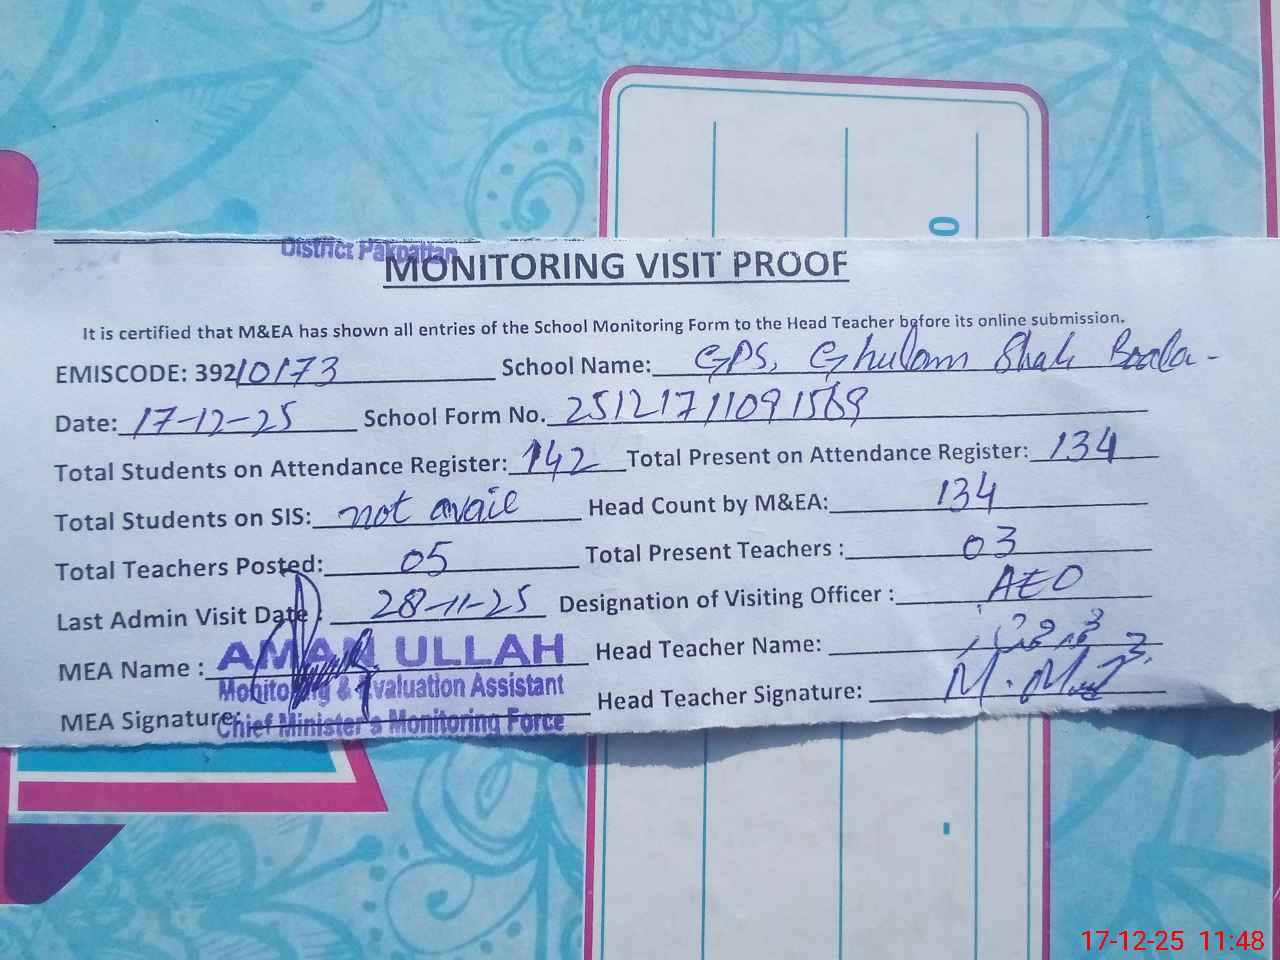 District Pakpattan
MONITORING VISIT PROOF
It is certified that M&EA has shown all entries of the School Monitoring Form to the Head Teacher before its online submission.
EMISCODE: 39210173 School Name: GPS, Ghulam Shah
Date: 17-12-25 School Form No. 25121711091569
Total Students on Attendance Register: 142 Total Present on Attendance Register: 134
Total Students on SIS: not avail Head Count by M&EA: 134
Total Teachers Posted: 05 Total Present Teachers : 03
Last Admin Visit Date : 28-11-25 Designation of Visiting Officer : AEO
MEA Name : AMAN ULLAH Head Teacher Name:
Monitoring & Evaluation Assistant
Head Teacher Signature:
MEA Signature: Chief Minister's Monitoring Force
0
17-12-25 11:48